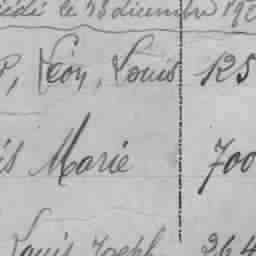 le 13 décembre 192
P, Léon, Louis 125
is Marie 700
Louis Joseph 264